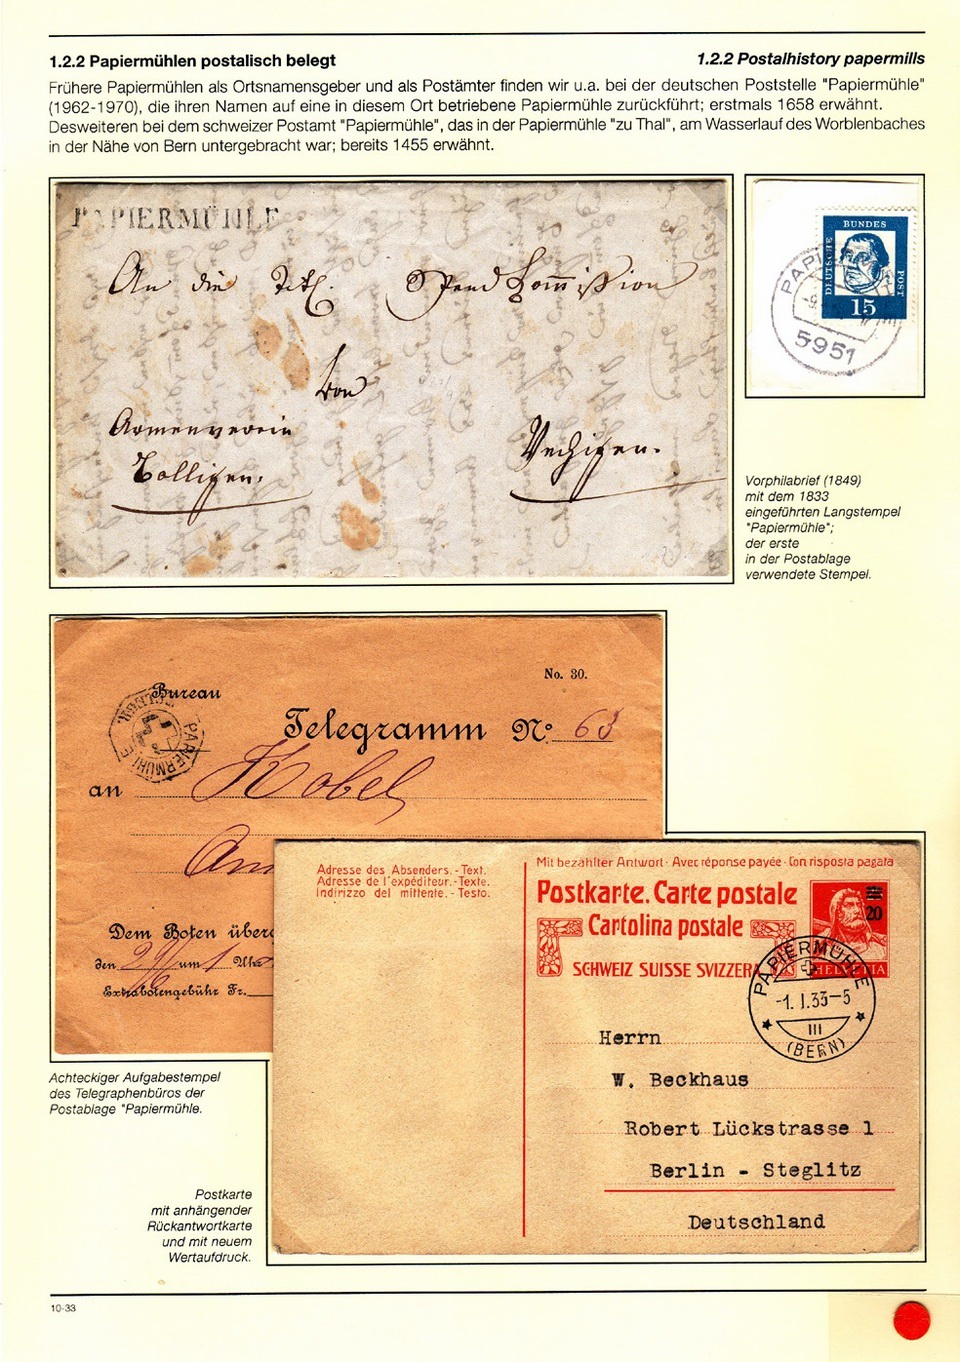 1.2.2 Papiermühlen postalisch belegt
1.2.2 Postalhistory papermills
Frühere Papiermühlen als Ortsnamensgeber und als Postämter finden wir u.a. bei der deutschen Poststelle "Papiermühle"
(1962-1970), die ihren Namen auf eine in diesem Ort betriebene Papiermühle zurückführt; erstmals 1658 erwähnt.
Desweiteren bei dem schweizer Postamt "Papiermühle", das in der Papiermühle "zu Thal", am Wasserlauf des Worblenbaches
in der Nähe von Bern untergebracht war; bereits 1455 erwähnt.
PAPIERMÜHLE
An die Titl. Spend Commission
von
Armenverein
Bolligen.
Vechigen.
DEUTSCHE
BUNDES
POST
15
5951
Vorphilabrief (1849)
mit dem 1833
eingeführten Langstempel
"Papiermühle";
der erste
in der Postablage
verwendete Stempel.
No. 30.
Bureau
Telegramm No. 63
PAPIERMÜHLE
an Kobel
Dem Boten über
den um 1 Uhr
Extrabotengebühr Fr.
Achteckiger Aufgabestempel
des Telegraphenbüros der
Postablage "Papiermühle.
Mit bezahlter Antwort · Avec réponse payée · Con risposta pagata
Adresse des Absenders. - Text.
Adresse de l'expéditeur. - Texte.
Indirizzo del mittente. - Testo.
Postkarte. Carte postale
Cartolina postale
SCHWEIZ SUISSE SVIZZERA
20
HELVETIA
PAPIERMÜHLE
-1. I. 33-5
III
(BERN)
Herrn
W. Beckhaus
Robert Lückstrasse 1
Berlin - Steglitz
Deutschland
Postkarte
mit anhängender
Rückantwortkarte
und mit neuem
Wertaufdruck.
10-33